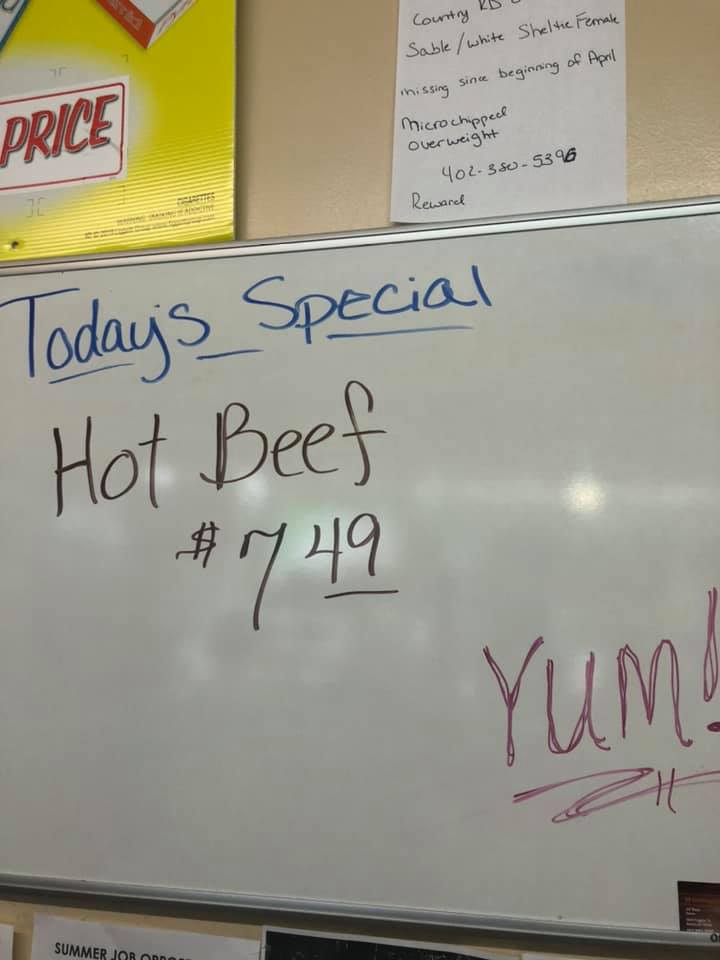 PRICE
CIGARETTES
Country RD
Sable/white Sheltie Female
missing since beginning of April
Microchipped
overweight
402-380-5396
Reward
Today's Special
Hot Beef
$7 49
YUM!
SUMMER JOB